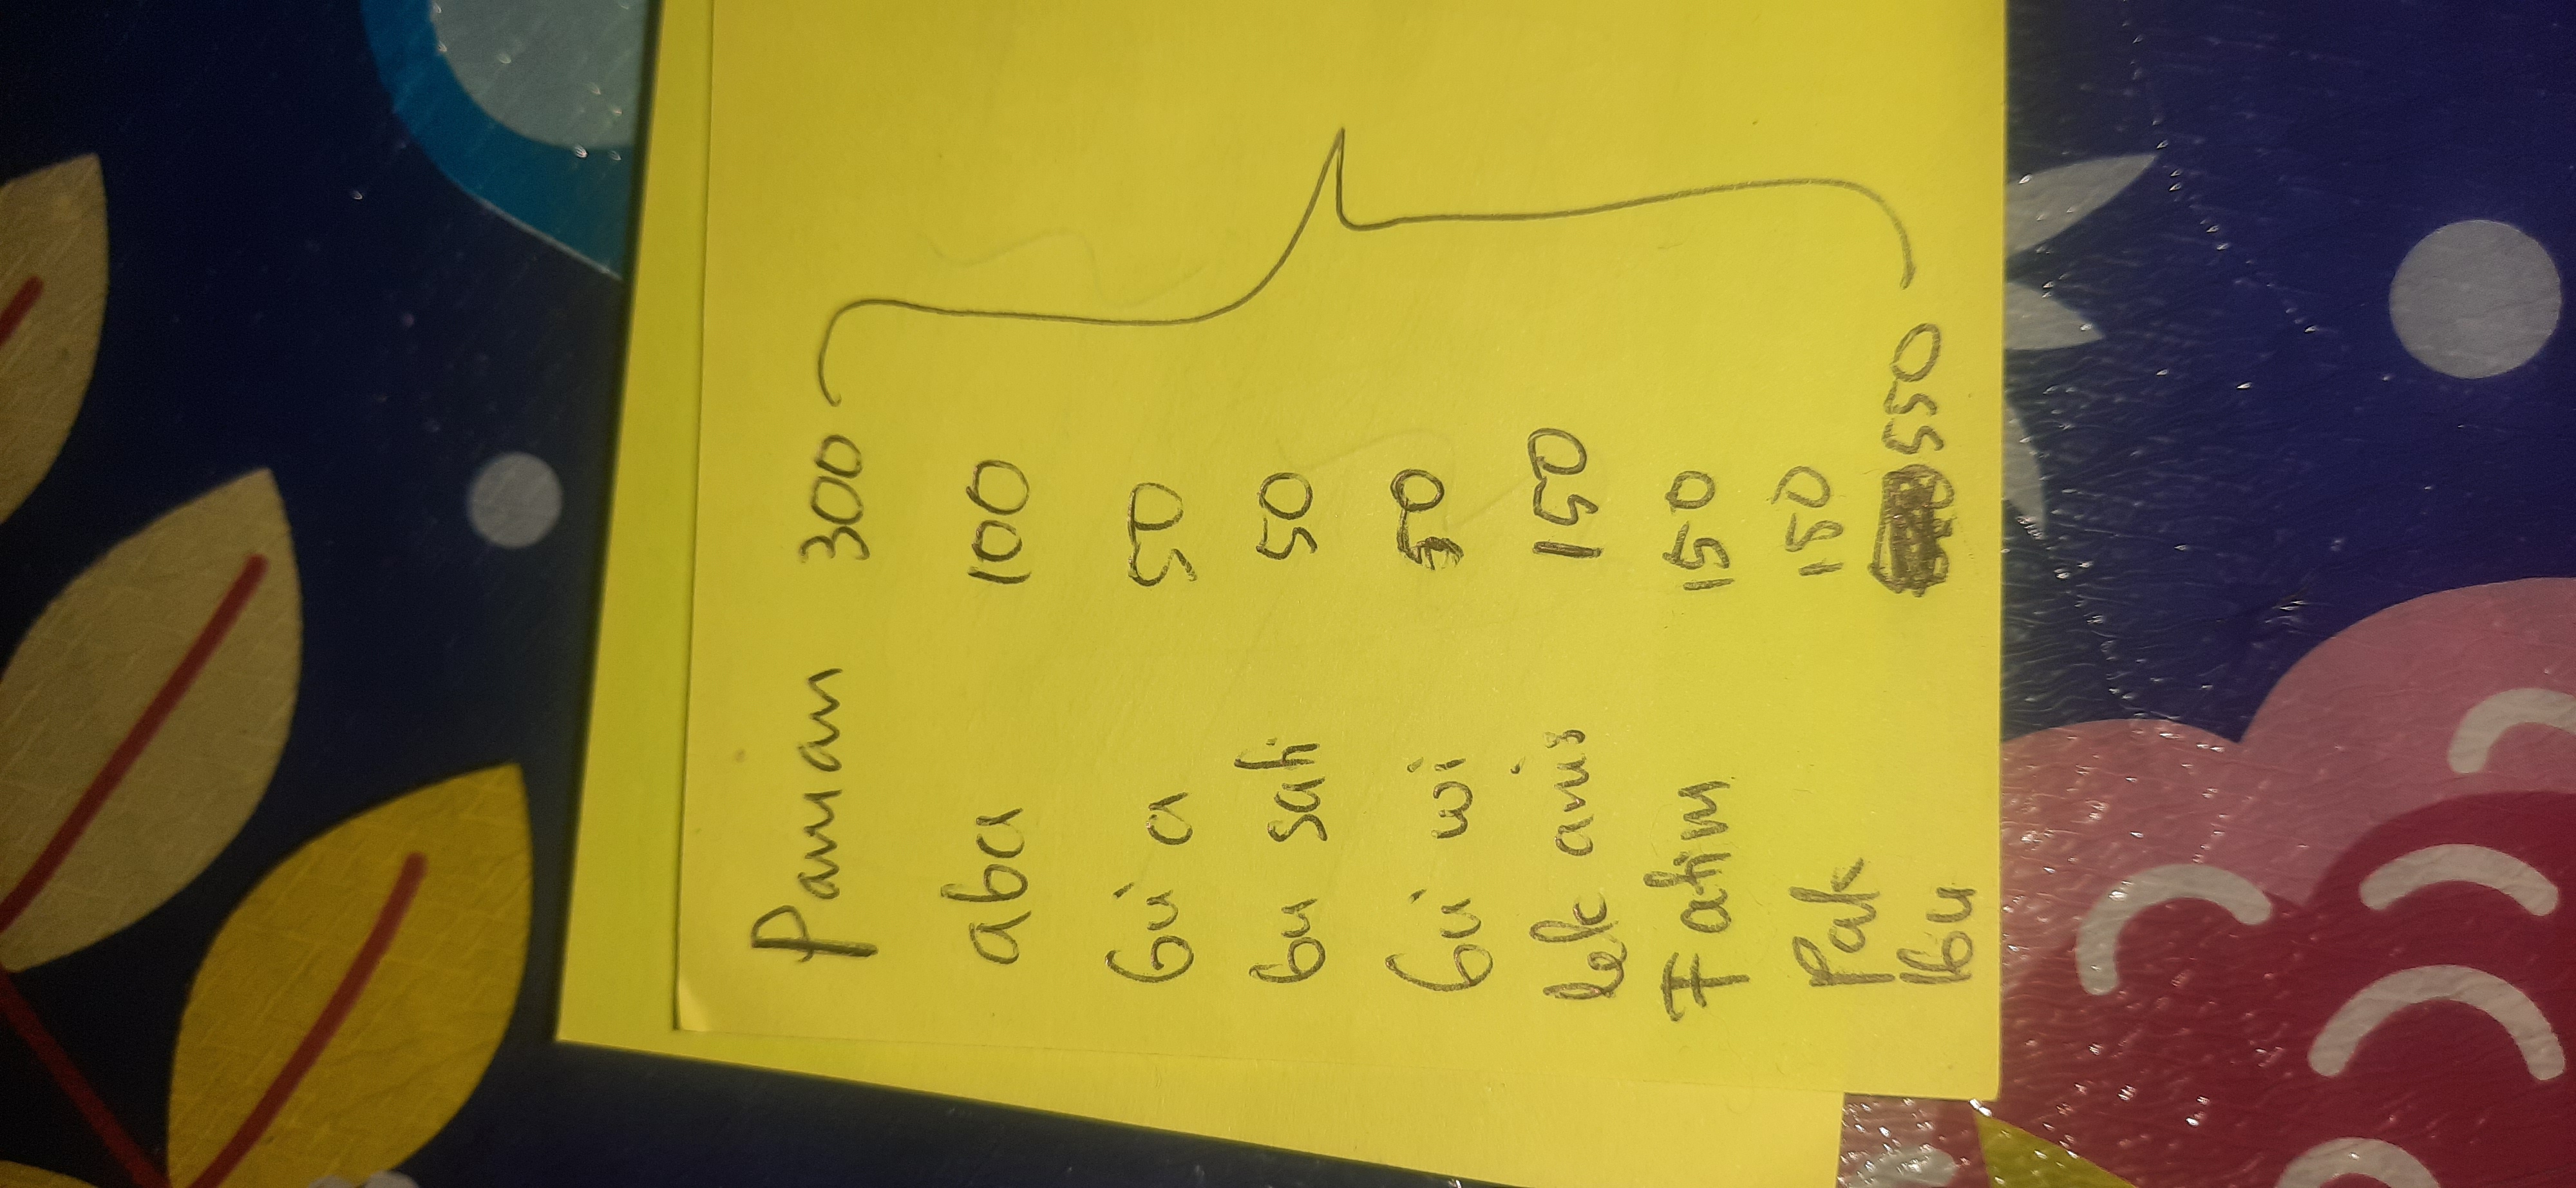 Paman 300
aba 100
bu' a 50
bu sati 50
bu' wi 50
lek anis 150
Fatim 150
Pak 150
Ibu 550